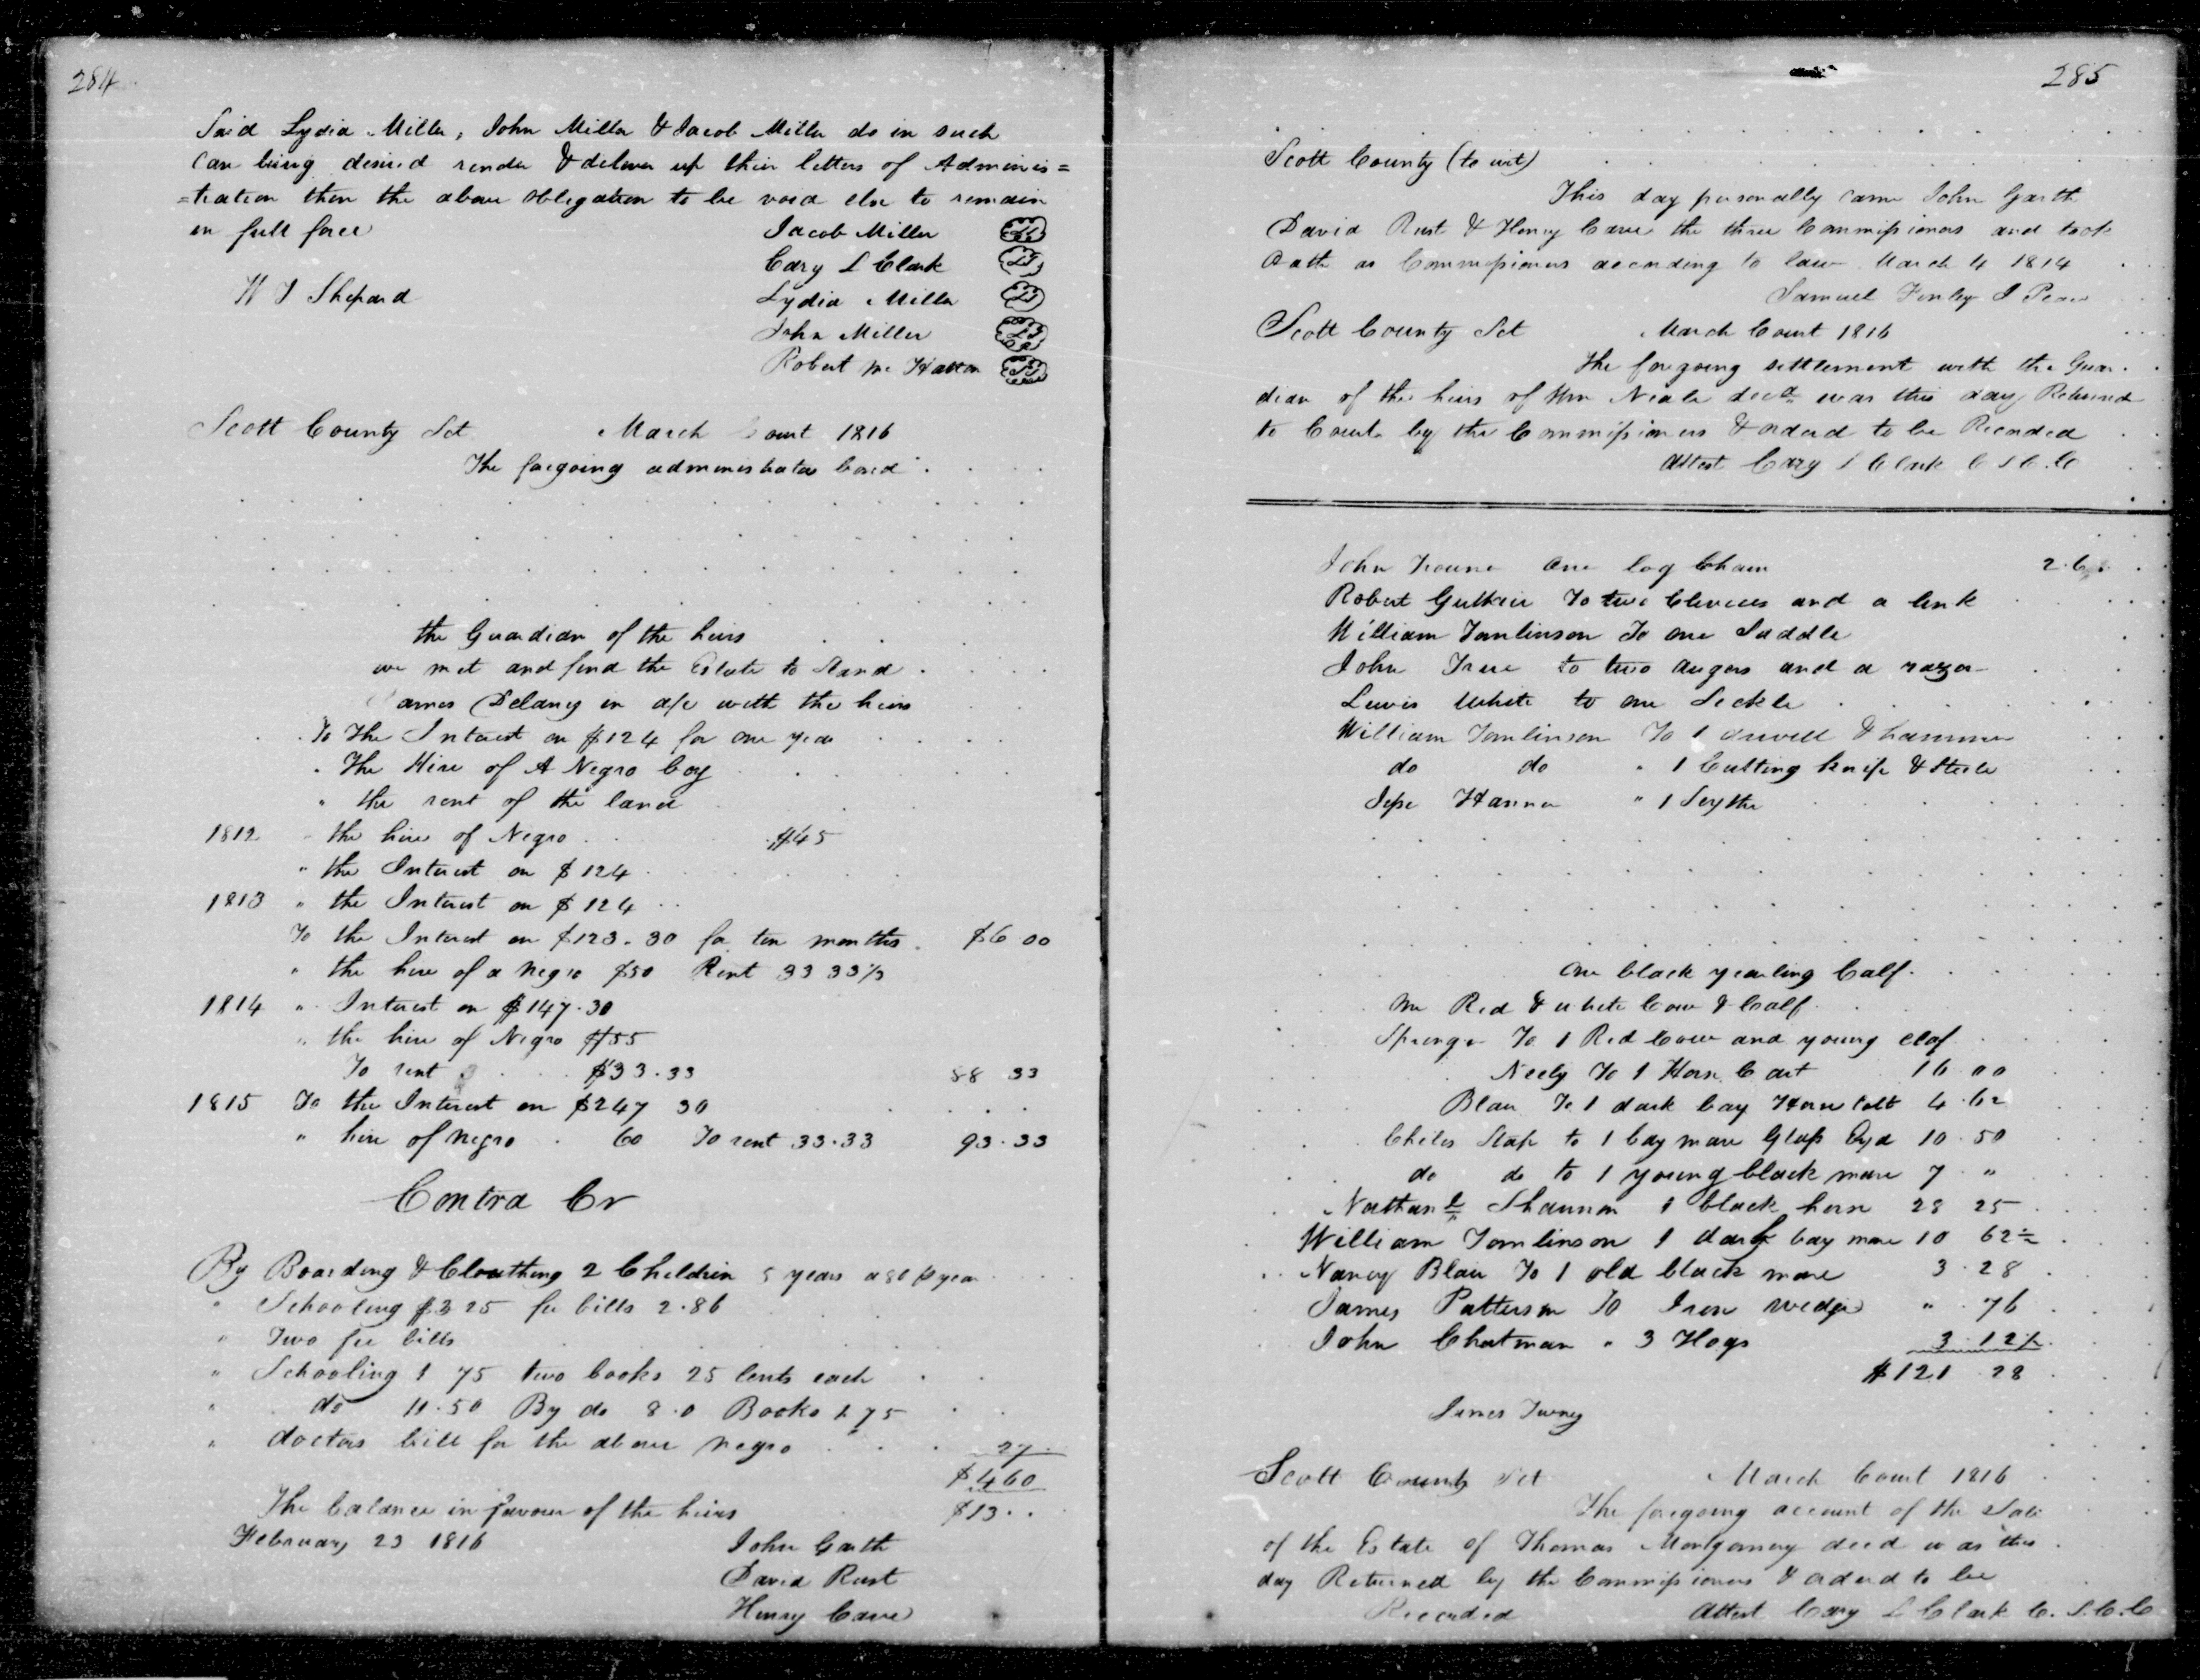 284
Said Lydia Miller, John Miller & Jacob Miller do in such
Case being desired render & deliver up their letters of Adminis=
=tration then the above obligation to be void else to remain
in full force
Jacob Miller LS
Cary L Clark LS
W J Shepard Lydia Miller LS
John Miller LS
Robert Mc Hatton LS
Scott County Sct March Court 1816
The foregoing administrators bond
the Guardian of the heirs
we met and find the Estate to Stand
James Delany in a/c with the heirs
To The Interest on $124 for one year
" The Hire of A Negro boy
" the rent of the land
1812 " the hire of Negro $45
" the Interest on $124
1813 " the Interest on $124
To the Interest on $123.30 for ten months $6 00
" the hire of a Negro $50 Rent 33 33⅓
1814 " Interest on $147.30
" the hire of Negro $55
To rent $33.33 88 33
1815 To the Interest on $247 30
" hire of Negro 60 To rent 33.33 93.33
Contra Cr
By Boarding & Clouthing 2 Children 5 years a 80 p year
" Schooling $3 25 fee bills 2.86
" Two fee bills
" Schooling 1 75 two books 25 Cents each
" do 11.50 By do 8.0 Books 1.75
" doctors bill for the above negro 27
$460
The balance in favour of the heirs $13
February 23 1816 John Garth
David Rust
Henry Cave
285
Scott County (to wit)
This day personally came John Garth
David Rust & Henry Cave the three Commissioners and took
Oath as Commissioners according to law March 4 1814
Samuel Finley J Peace
Scott County Sct March Court 1816
The foregoing settlement with the Guar
dian of the heirs of Wm Neale decd was this day Returned
to Court by the Commissioners & orderd to be Recorded
Attest Cary L Clark C S C. C
John one log Chain
Robert Guthrie To two Clevices and a link
William Tomlinson To one Saddle
John True to two augers and a razor
Lewis White to one Sickle
William Tomlinson To 1 & hammer
do do " 1 Cutting knife & Steele
Jesse Hanna " 1 Scythe
One black yearling Calf
one Red & white Cow & Calf
Springer To 1 Red Cow and young claf
Neely To 1 Horse Cart 16.00
Blair To 1 dark bay Horse Colt 4.62
Chiles Stap to 1 bay mare Glass Eyd 10.50
do do to 1 young black mare 7 "
Nathanl Shannon 1 black horse 28 25
William Tomlinson 1 dark bay mare 10 62½
Nancy Blair To 1 old black mare 3.28
James Patterson To Iron wedge " .76
John Chatman " 3 Hogs 3.12½
$121.28
James Twney
Scott County Sct March Court 1816
The foregoing account of the Sale
of the Estate of Thomas Montgomery decd was this
day Returned by the Commissioners & orderd to be
Recorded Attest Cary L Clark C. S. C. C